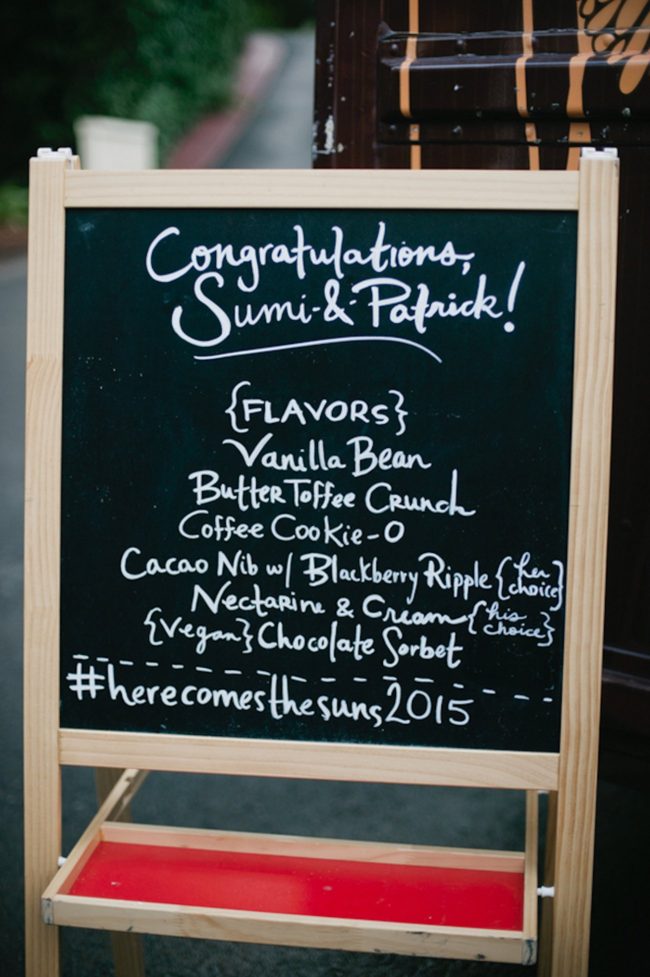 Congratulations,
Sumi-&-Patrick!
{FLAVORS}
Vanilla Bean
Butter Toffee Crunch
Coffee Cookie-O
Cacao Nib w/ Blackberry Ripple {her choice}
Nectarine & Cream {his choice}
{Vegan} Chocolate Sorbet
#herecomesthesuns2015